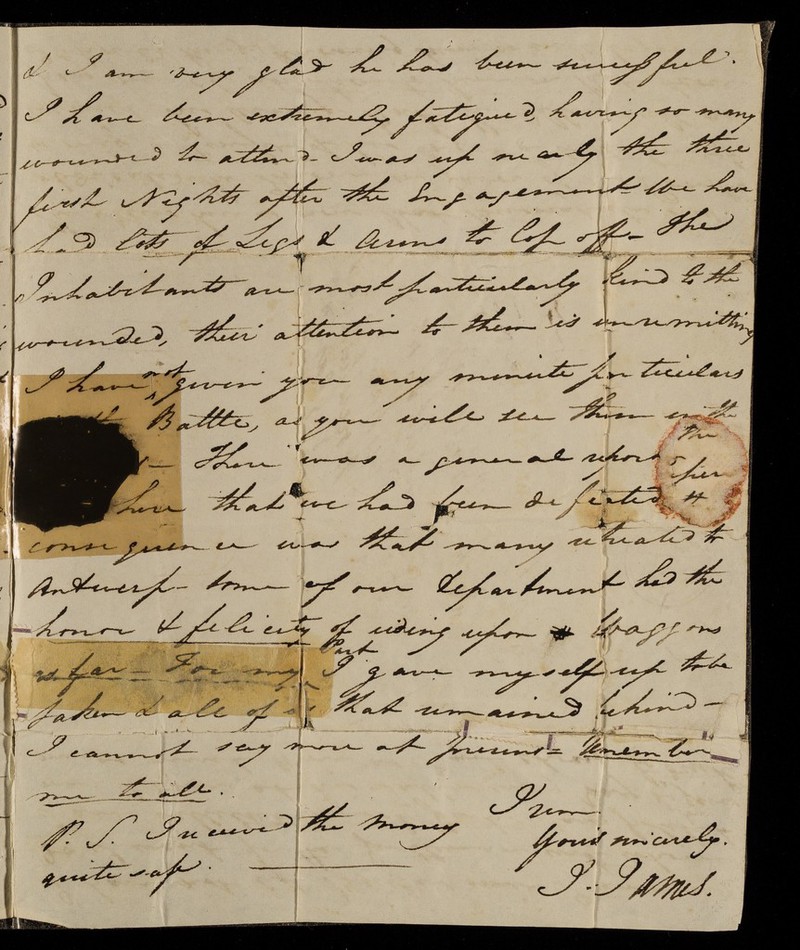 & I am very glad he has been successful.
I have been extremely fatigued, having so many
wounded to attend - I was up nearly the three
first Nights after the Engagement - We have
had lots of Legs & Arms to Lop off - The
Inhabitants are most particularly kind to the
wounded, their attention to them is unremitting
I have not given you any minute particulars
Battle, as you will see them in the
- There was a general report
here that we had been defeated The
consequence was that many retreated to
Antwerp - some of our department had the
honor & felicity of riding upon Waggons
as far - For my Part I gave myself up to be
taken & all of us that remained behind -
I cannot say more at present - Remember
me to all.
I rem
Yours sincerely.
J. James.
P.S. I received the money
quite safe.